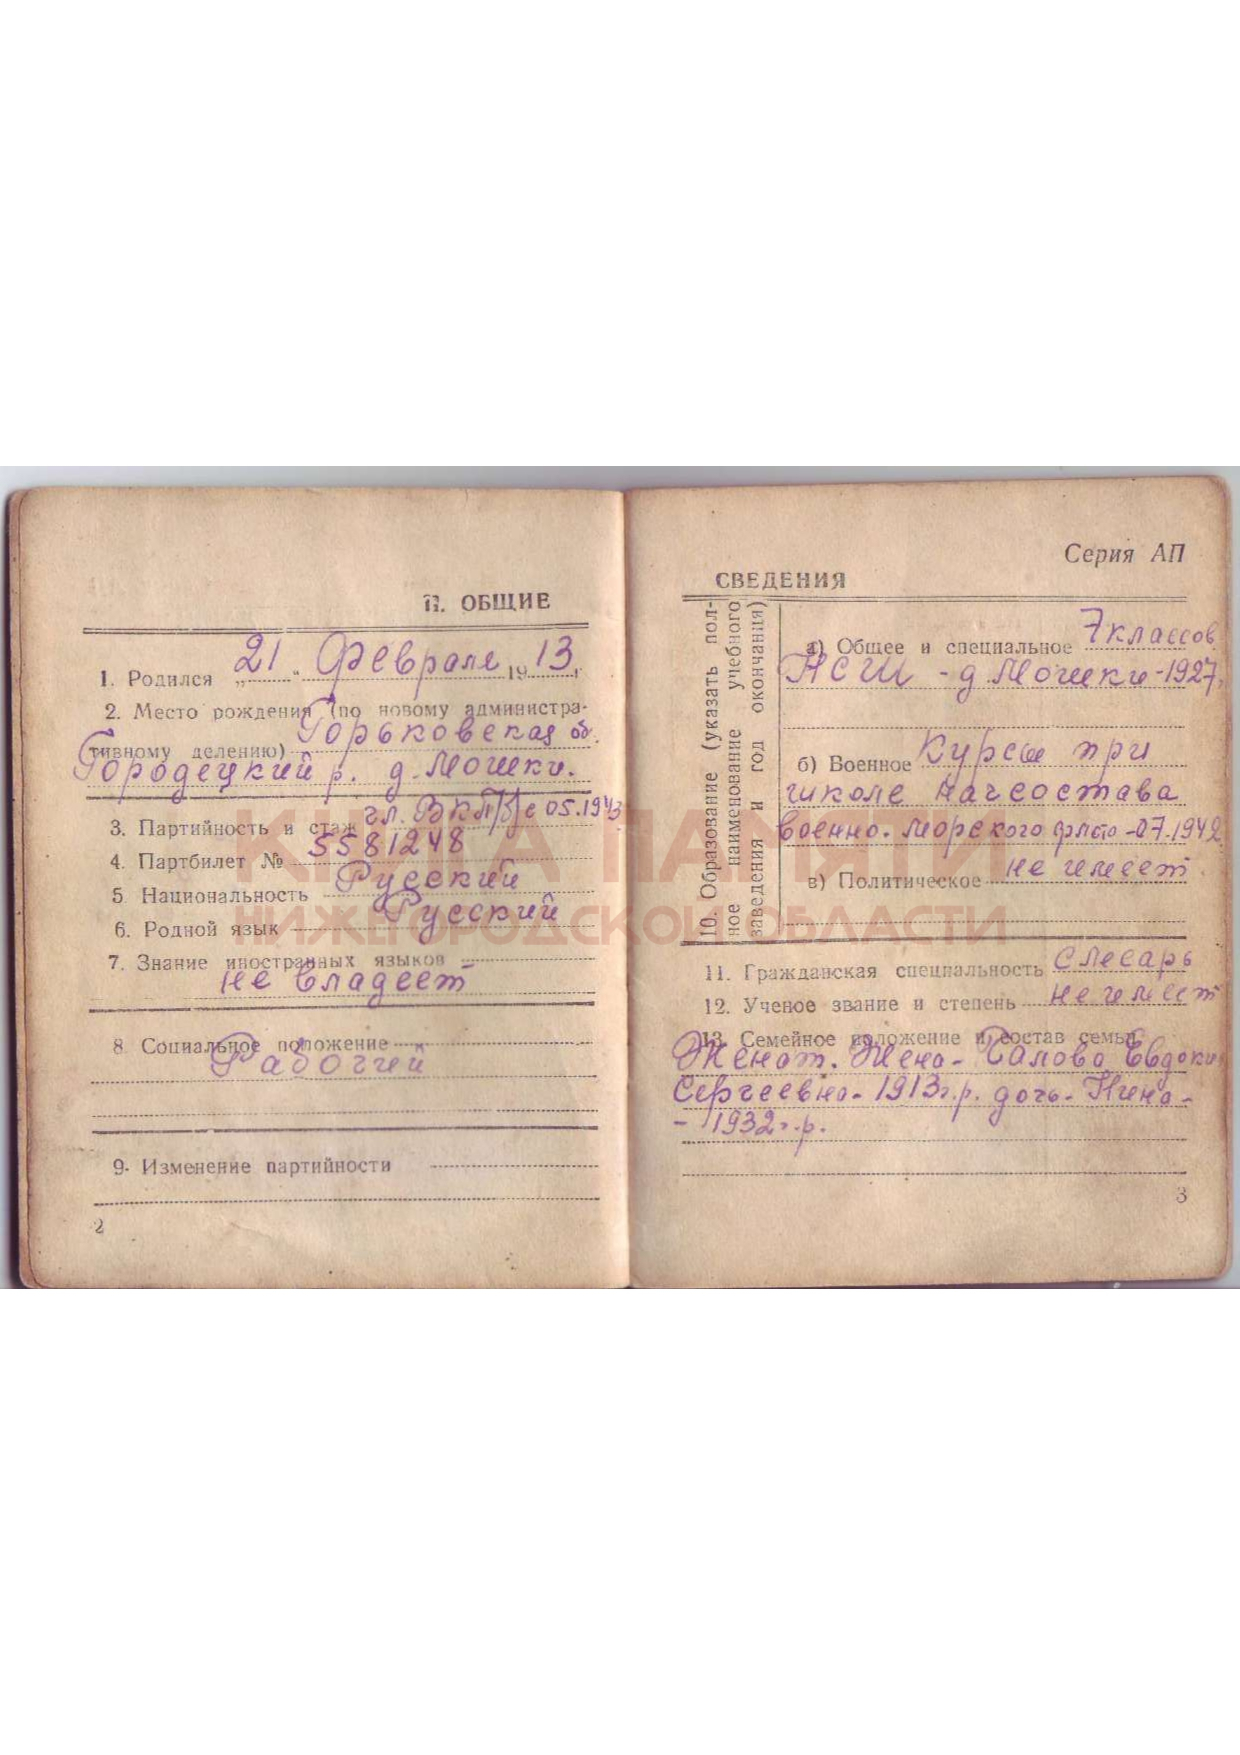 II. ОБЩИЕ
1. Родился „21" Февраля 1913 г.
2. Место рождения (по новому администра-
тивному делению) Горьковская об.
Городецкий р. д. Мошки.
3. Партийность и стаж чл. ВКП(б) с 05.1943
4. Партбилет № 5581248
5 Национальность Русский
6. Родной язык Русский
7. Знание иностранных языков
не владеет
8 Социальное положение
Рабочий
9. Изменение партийности
2
Серия АП
СВЕДЕНИЯ
10. Образование (указать пол-
ное наименование учебного
заведения и год окончания)
а) Общее и специальное 7 классов
НСШ - д. Мошки - 1927.
б) Военное Курсы при
школе начсостава
военно-морского флота - 07.1942
в) Политическое не имеет.
11. Гражданская специальность слесарь
12. Ученое звание и степень не имеет
13. Семейное положение и состав семьи
Женат. Жена - Евдокия
Сергеевна - 1913 г.р. дочь -
- 1932 г.р.
3
КНИГА ПАМЯТИ
НИЖЕГОРОДСКОЙ ОБЛАСТИ